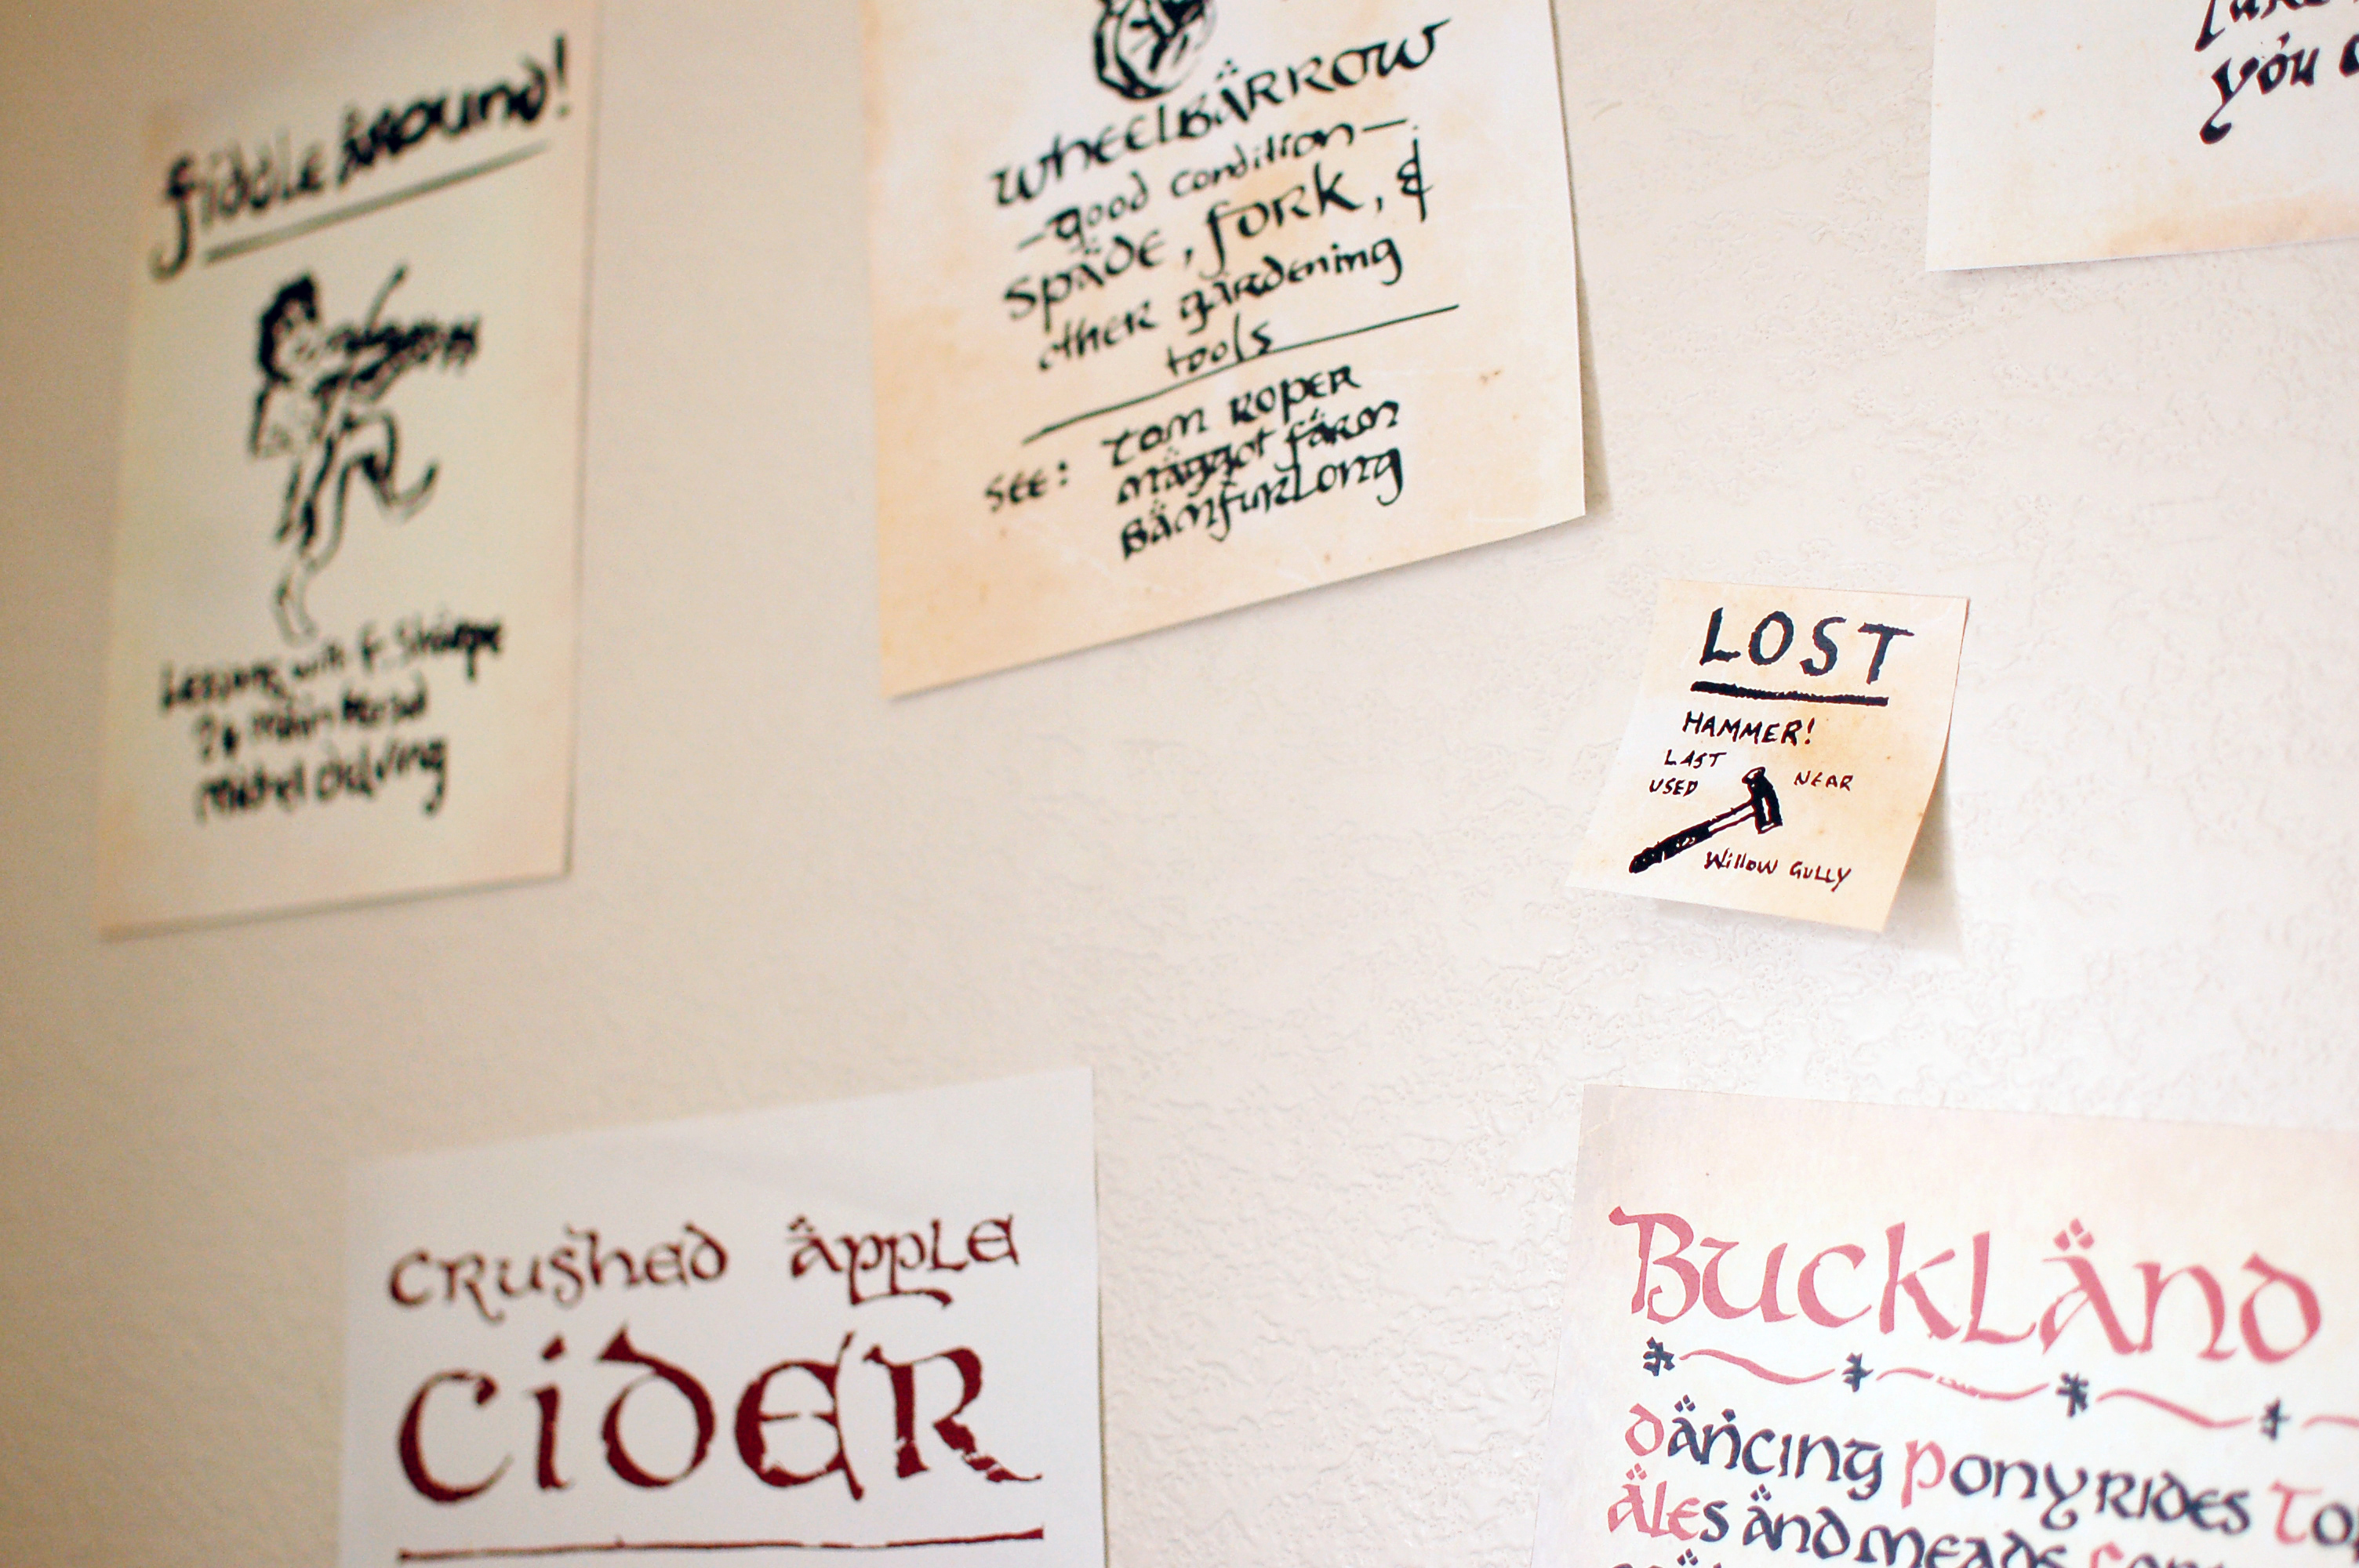 fiddle äround!
Lessons with f. Shärpe
Michel delving
WheelBÄRROW
—good condition—
späde, fork, &
other gärdening
tools
see: Tom Roper
mäggot färm
Bämfurlong
you
LOST
HAMMER!
LAST
USED
NEAR
Willow GULLY
crushed äpple
cider
Buckländ
däncing pony rides
äles änd meads